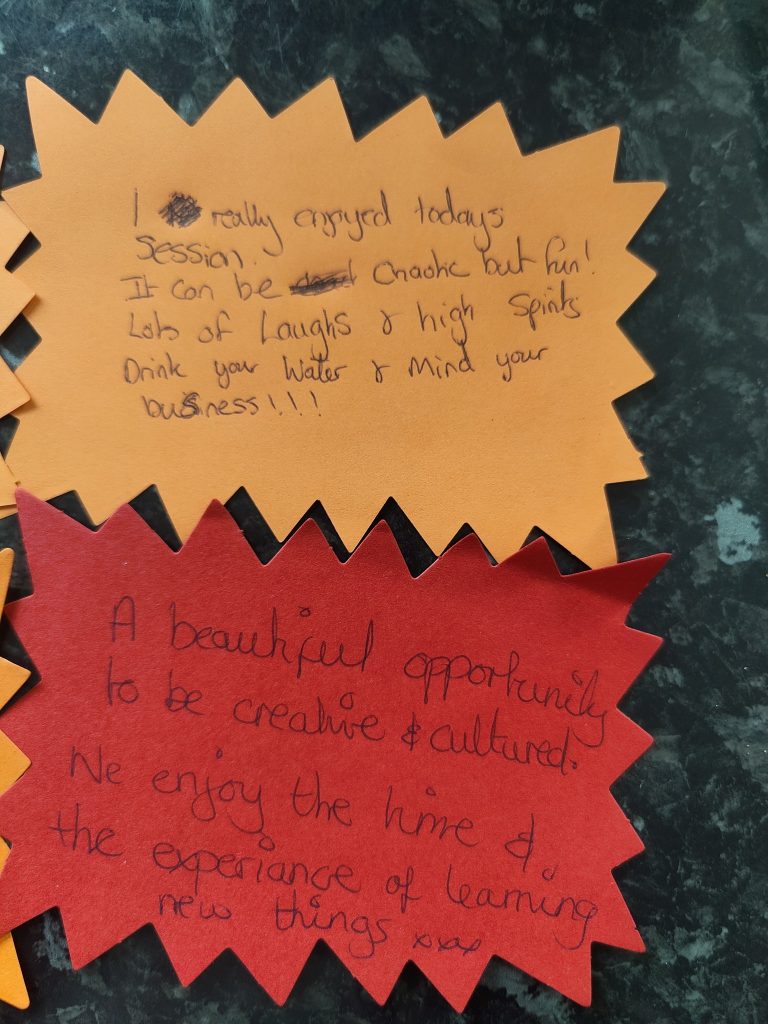 I really enjoyed todays
Session.
It can be Chaotic but fun!
Lots of Laughs & high Spirits
Drink your Water & Mind your
business!!!
A beautiful opportunity
to be creative & cultured.
We enjoy the time &
the experiance of learning
new things xxx